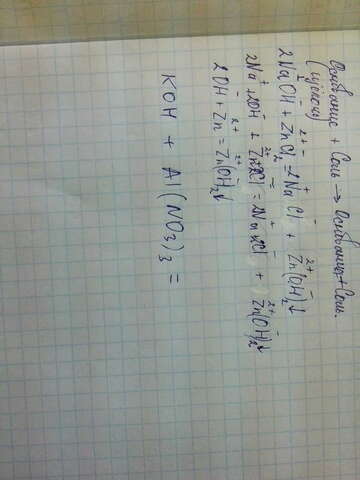 Основание + Соль → Основание + Соль.
(щелочь)
2NaOH + ZnCl₂ = 2NaCl + Zn(OH)₂↓
2Na⁺ + 2OH⁻ + Zn²⁺ + 2Cl⁻ = 2Na⁺ + 2Cl⁻ + Zn(OH)₂↓
2OH⁻ + Zn²⁺ = Zn(OH)₂↓
KOH + Al(NO₃)₃ =